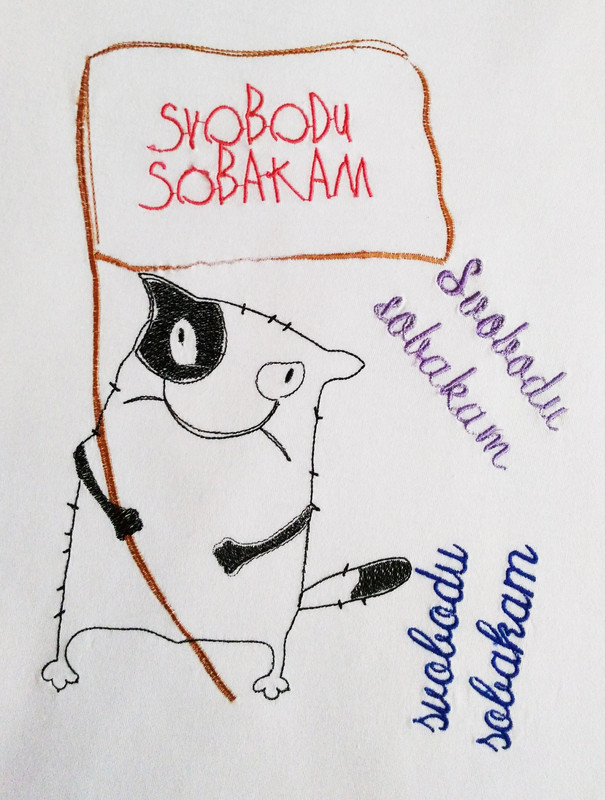 SVOBODU
SOBAKAM
Svobodu
sobakam
svobodu
sobakam